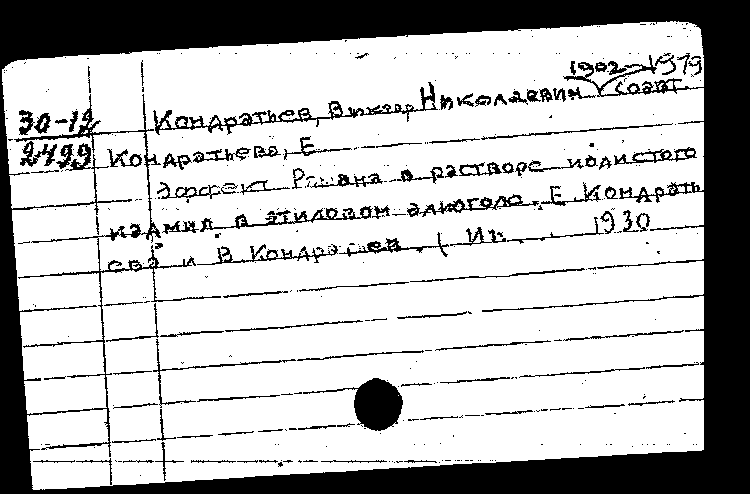 1902-1979
30-12 Кондратьев, Виктор Николаевич соавт.
2499 Кондратьева, Е
Эффект Рамана в растворе иодистого
кадмия в этиловом алкоголе. Е Кондрать
ева и В Кондратьев. ( 1930